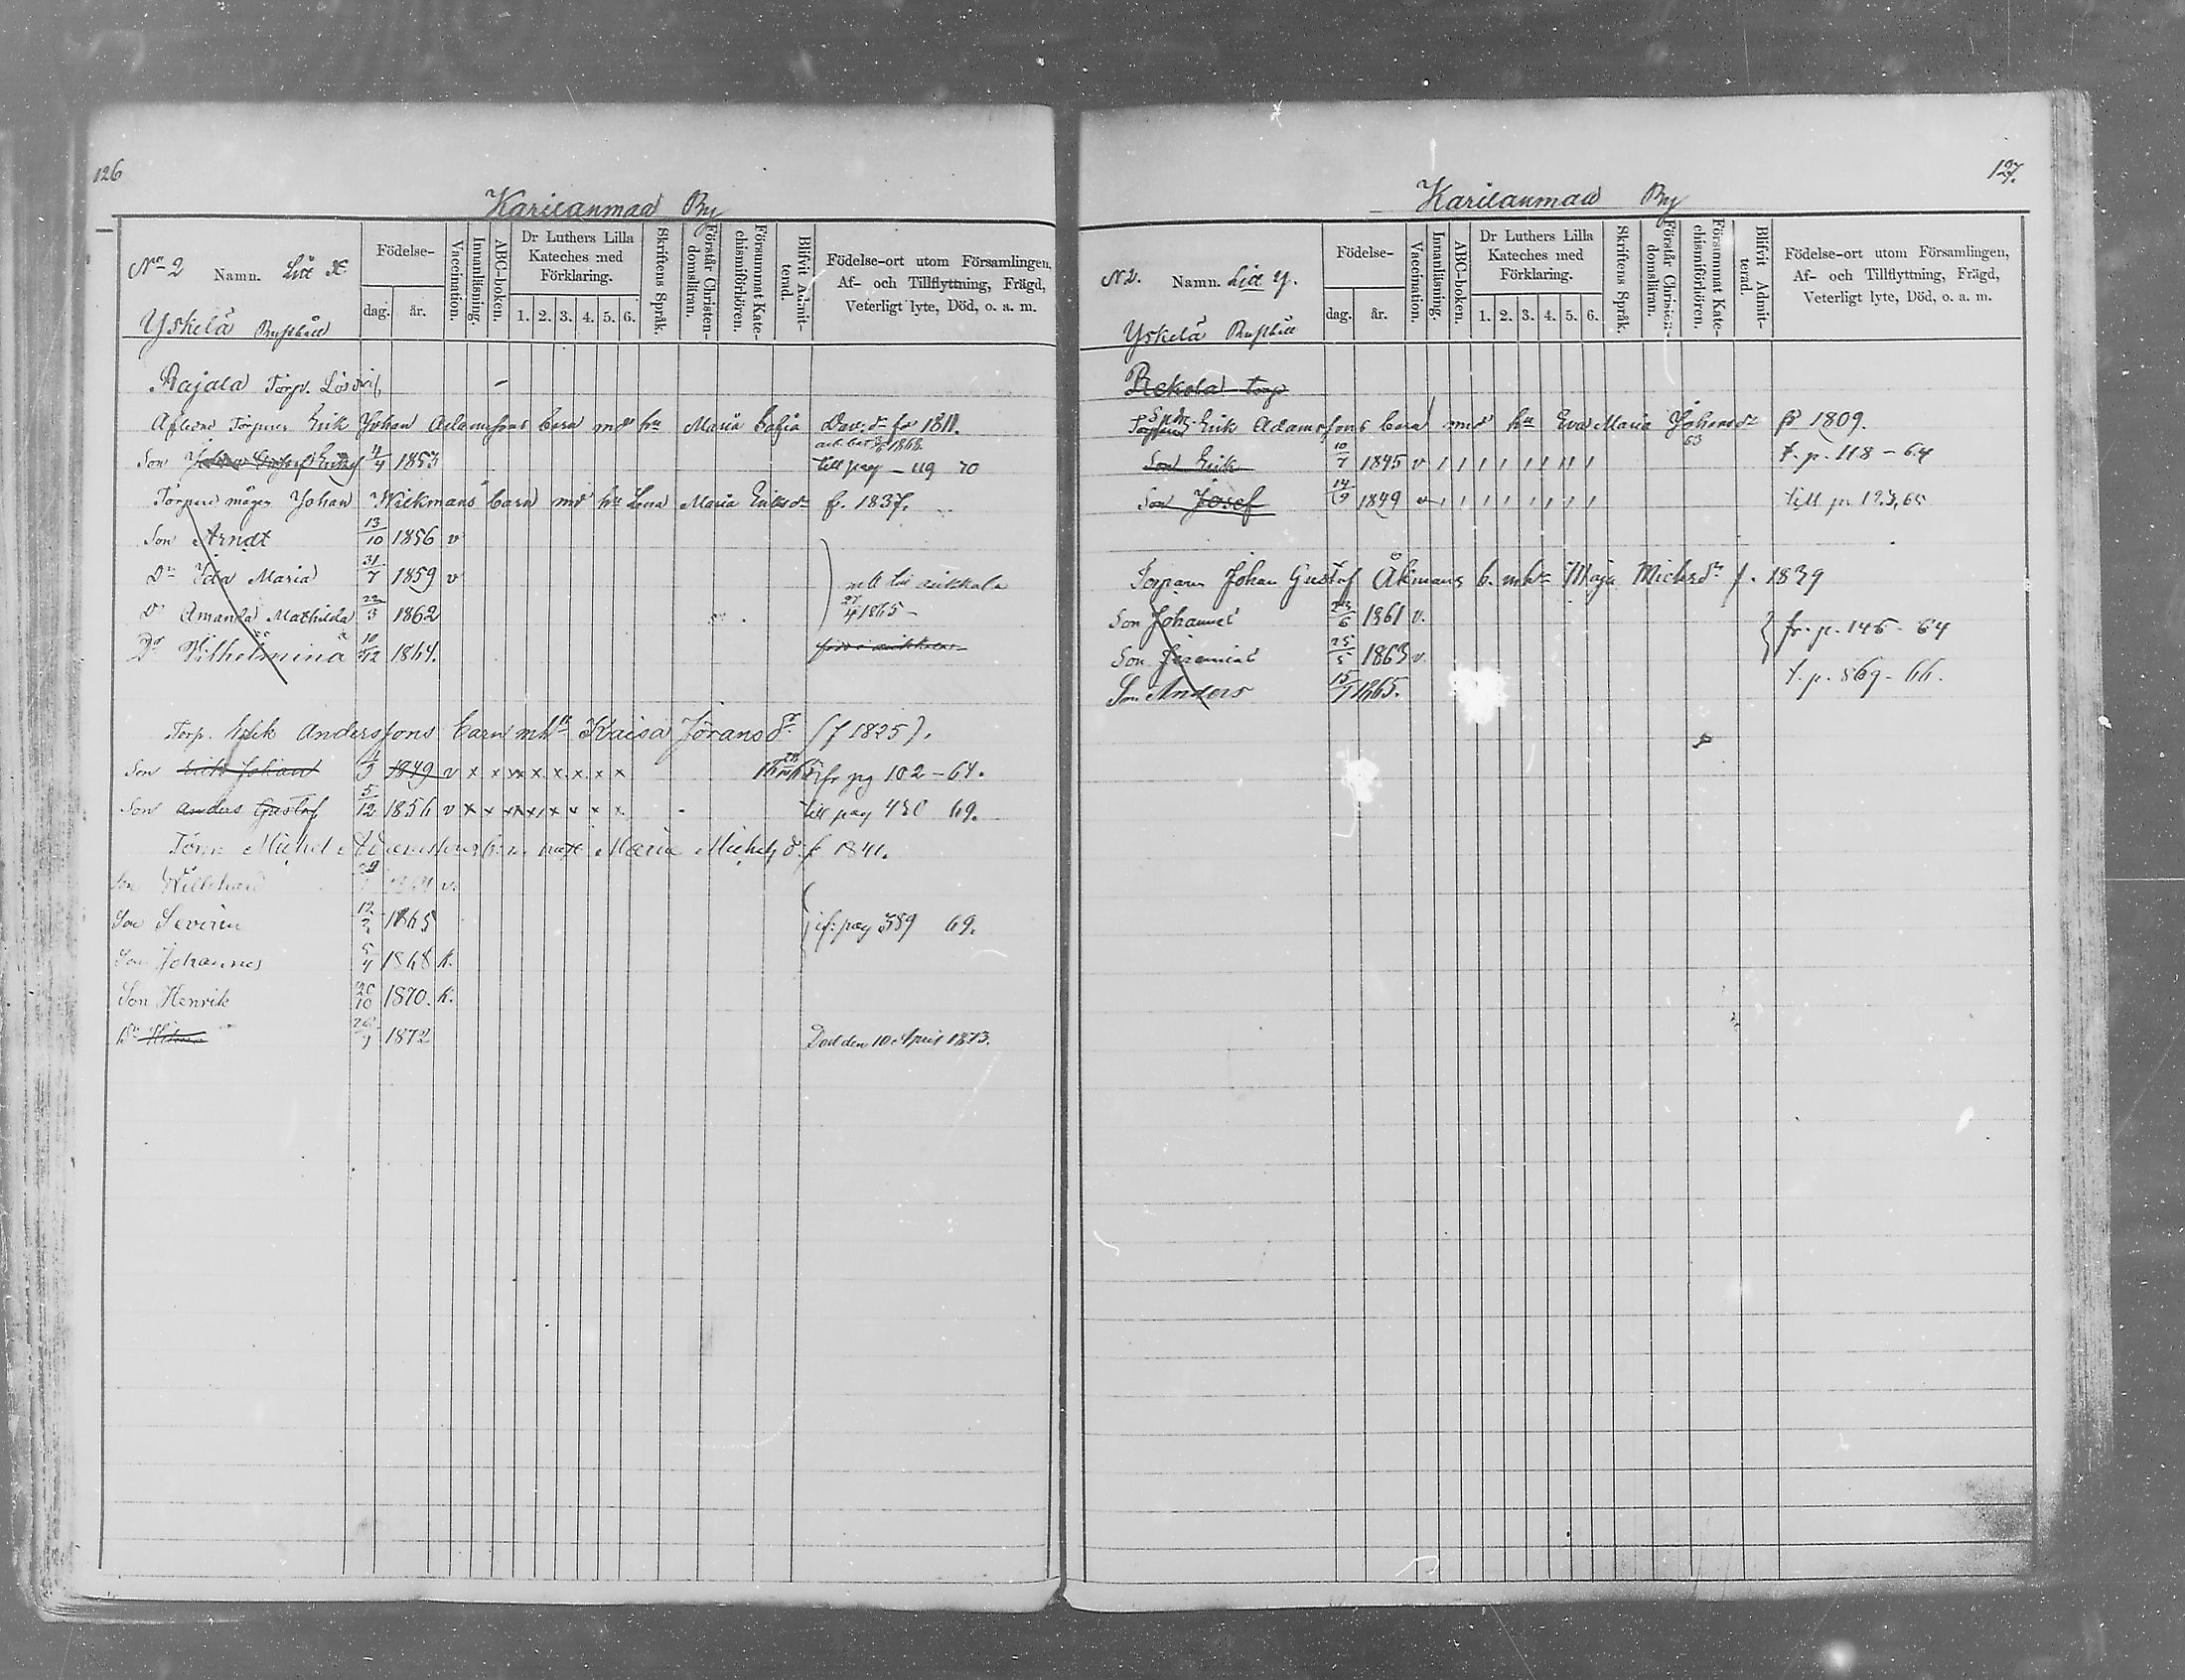 126
Karilanmaa By
No 2 Namn. Litt X.
Födelse-
dag. år.
Vaccination.
Innanläsning.
ABC-boken.
Dr Luthers Lilla Kateches med Förklaring.
1. 2. 3. 4. 5. 6.
Skriftens Språk.
Förstår Christendomsläran.
Försummat Katechismiförhören.
Blifvit Admitterad.
Födelse-ort utom Församlingen,
Af- och Tillflyttning, Frägd,
Veterligt lyte, Död, o. a. m.
Yskelä Rusthåll
Rajala Torp.
Afledne Torparen Erik Johan Adamssons barn md hu Maria Sofia Dav. dr fö 1811.
Son 1853 till pag – 119 70
Torpare mågen Johan Wickmans barn md hu Lena Maria Eriksdr f. 1837.
Son Arndt 13/10 1856 v
Dr Ida Maria 31/7 1859 v
Dr Amanda Mathilda 22/3 1862 27/4 1865 –
Dr Vilhelmina 10/12 1864.
Torp. Erik Anderssons barn mhu Kaisa Jöransdr (f 1825).
Son Erik Johan 1849 v x x x x x x x x fr pg 102 – 64.
Son Anders Gustaf 5/12 1856 v x x x x x x x x till pag 430 69.
Torp. Michel barn Maria Michelsdr f 1841.
Son
Son Severin 12/2 1865 pag 389 69.
Son Johannes 5/4 1868 k.
Son Henrik 20/10 1870. k.
Dr 1872 Död den 10 April 1873.
127.
Karilanmaa By
N 2. Namn. Litt Y.
Födelse-
dag. år.
Vaccination.
Innanläsning.
ABC-boken.
Dr Luthers Lilla Kateches med Förklaring.
1. 2. 3. 4. 5. 6.
Skriftens Språk.
Förstår Christendomsläran.
Försummat Katechismiförhören.
Blifvit Admitterad.
Födelse-ort utom Församlingen,
Af- och Tillflyttning, Frägd,
Veterligt lyte, Död, o. a. m.
Yskelä Rusthåll
Rekola torp
Erik Adamssons barn md hu Eva Maria Johansdr fö 1809.
Son Erik 10/7 1845 v 63 t. p. 118 – 64
Son Josef 14/9 1849 v till p. 123, 65
Torparen Johan Gustaf Åkmans b. m hu Maja Michelsdr f. 1839
Son Johannes 23/6 1861 v. fr. p. 146 – 64
Son Jeremias 25/5 1863 v.
Son Anders 15/7 1865. t. p. 869 – 66.